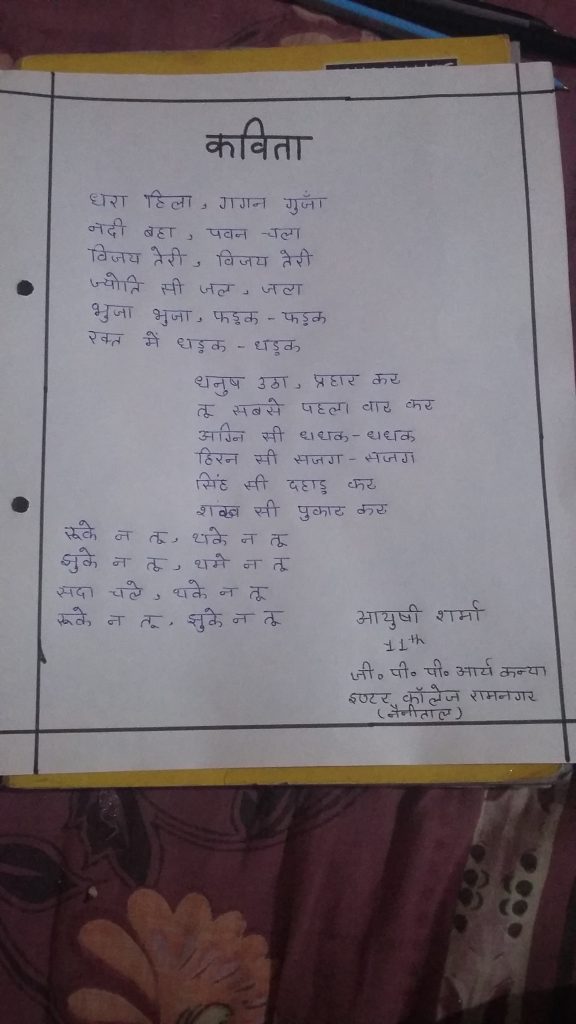 कविता
धरा हिला, गगन गुँजा
नदी बहा, पवन चला
विजय तेरी, विजय तेरी
ज्योति सी जल, जला
भुजा भुजा, फड़क - फड़क
रक्त में धड़क - धड़क
धनुष उठा, प्रहार कर
तू सबसे पहला वार कर
अग्नि सी धधक - धधक
हिरन सी सजग - सजग
सिंह सी दहाड़ कर
शंख सी पुकार कर
रूके न तू, थके न तू
झुके न तू, थमे न तू
सदा चले, थके न तू
रूके न तू, झुके न तू
आयुषी शर्मा
11th
जी॰ पी॰ पी॰ आर्य कन्या
इण्टर कॉलेज रामनगर
(नैनीताल)